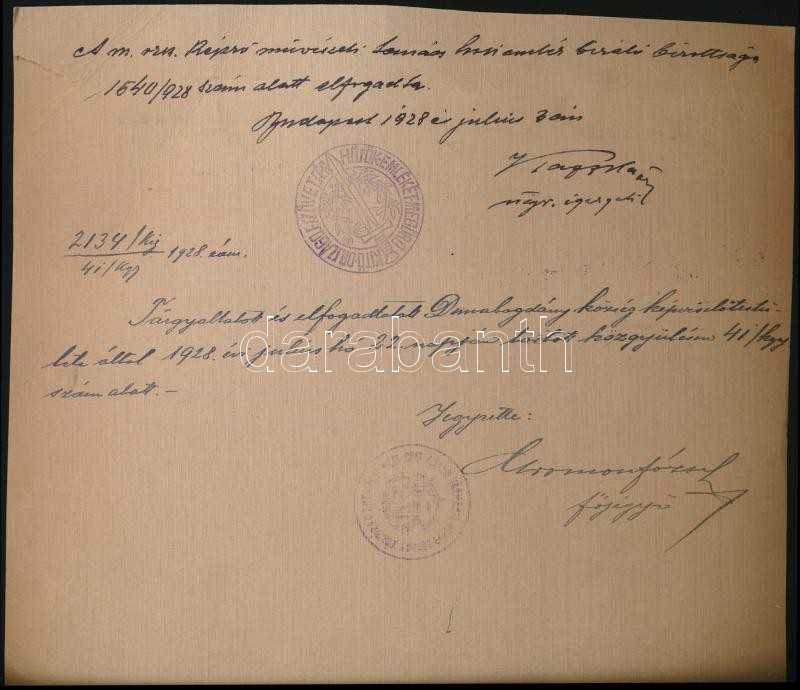 A m. orsz. Képzőművészeti tanács hősi emlék biráló bizottsága
1540/928 szám alatt elfogadta.
Budapest 1928 év julius 3 án
ügyv. igazgató
HŐSÖK EMLÉKÉT MEGÖRÖKITŐ ORSZÁGOS
2134/kig
41/kgy 1928. szám.
Tárgyaltatott és elfogadtatott Dunabogdány község képviselőtestü-
lete által 1928. év julius hó 22 napján tartott közgyülésén 41/kgy
szám alatt. -
darabanth
Jegyezte:
főjegyző